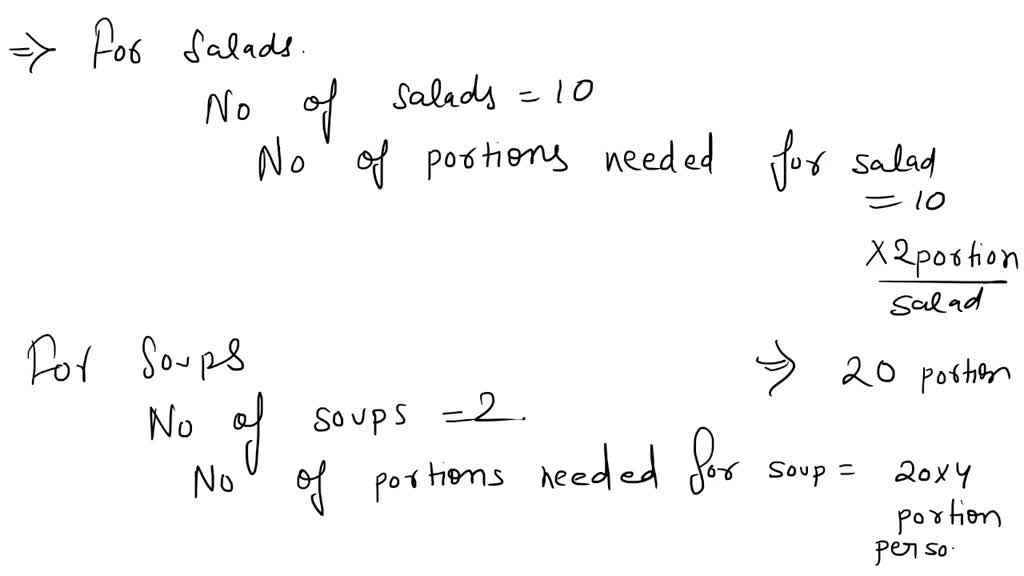 ⇒ For Salads.
No of salads = 10
No of portions needed for salad
= 10
× 2 portion
salad
For Soups ⇒ 20 portion
No of soups = 2.
No of portions needed for soup = 20×4
portion
per so.